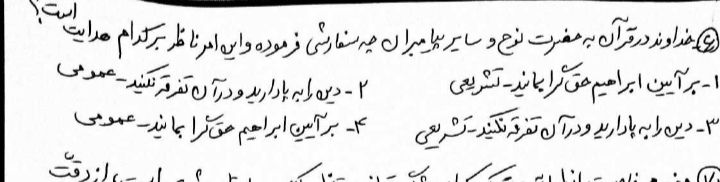 ۶) خداوند در قرآن به حضرت نوح و سایر پیامبران چه سفارشی فرموده و این امر ناظر بر کدام هدایت است؟
۱- بر آیین ابراهیم حق گرا بمانید - تشریعی ۲- دین را به پا دارید و در آن تفرقه نکنید - عمومی
۳- دین را به پا دارید و در آن تفرقه نکنید - تشریعی ۴- بر آیین ابراهیم حق گرا بمانید - عمومی